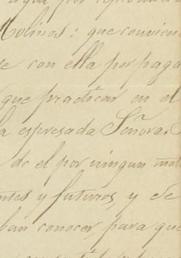 Molinos: que convien
e con ella por paga
que practicar en el
la espresada Señora
de el por ningun mot
ntes y futuros y se
ban conocer para que